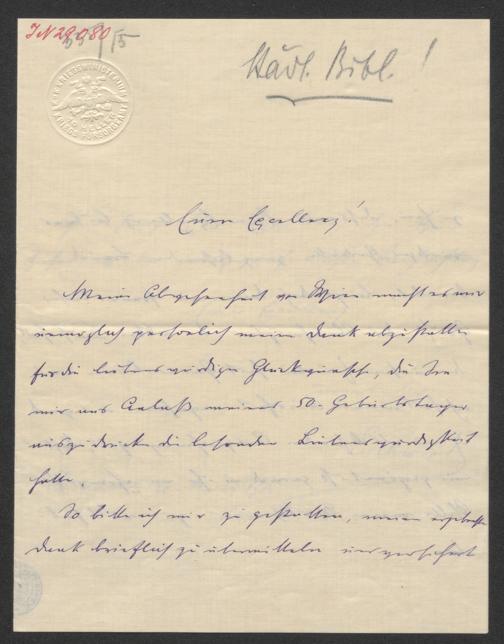 JN 29.080
Städt. Bibl.!
K.u.K. KRIEGSMINISTERIUM
KRIEGSFÜRSORGEAMT
Euere Excellenz!
Meine Abwesenheit von Wien macht es mir
unmöglich persönlich meinen Dank abzustatten
für die liebenswürdigen Glückwünsche, die Sie
mir aus Anlaß meines 50. Geburtstages
auszudrücken die besondere Liebenswürdigkeit
hatten.
So bitte ich mir zu gestatten, meinen ergebensten
Dank brieflich zu übermitteln und